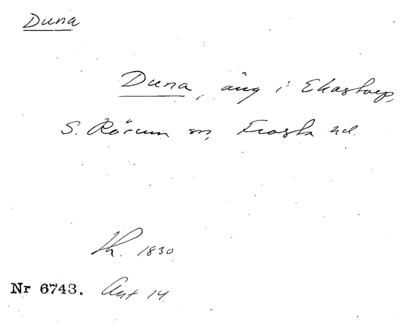 Duna
Duna, äng i Ekastorp,
S. Rörum sn, Frosta hd.
1830
Nr 6743. Akt 14